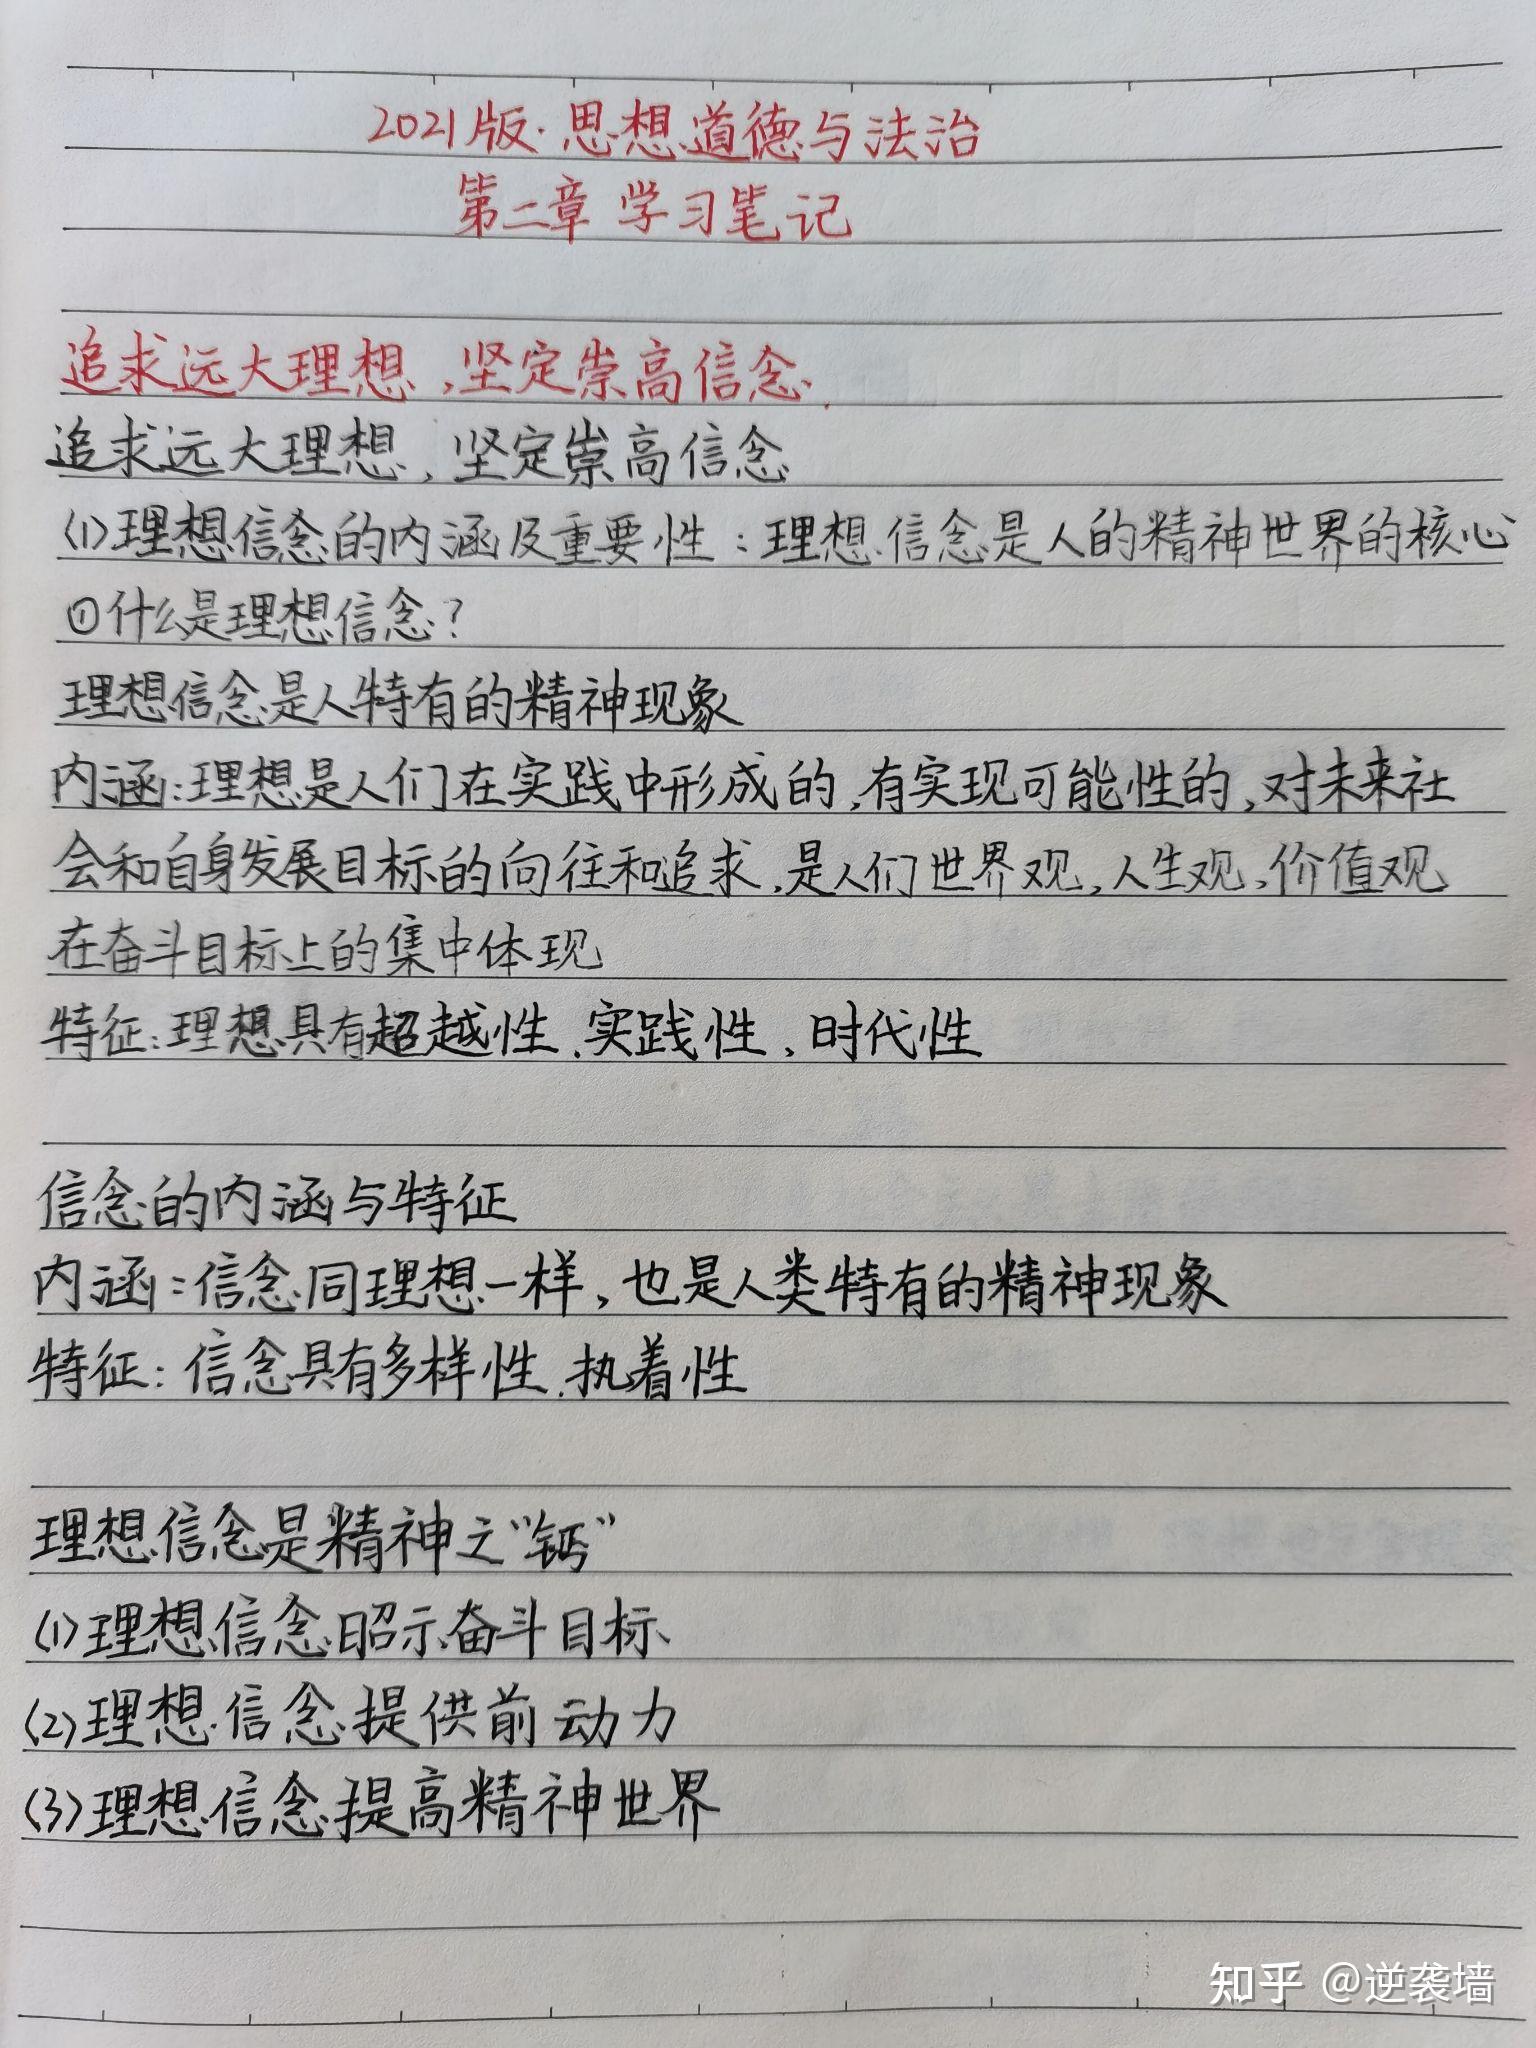 2021版·思想道德与法治
第二章 学习笔记
追求远大理想，坚定崇高信念.
追求远大理想，坚定崇高信念
(1)理想信念的内涵及重要性：理想信念是人的精神世界的核心
①什么是理想信念？
理想信念是人特有的精神现象
内涵：理想是人们在实践中形成的，有实现可能性的，对未来社
会和自身发展目标的向往和追求，是人们世界观，人生观，价值观
在奋斗目标上的集中体现
特征：理想具有超越性、实践性、时代性
信念的内涵与特征
内涵：信念同理想一样，也是人类特有的精神现象
特征：信念具有多样性、执着性
理想信念是精神之“钙”
(1)理想信念昭示奋斗目标
(2)理想信念提供前动力
(3)理想信念提高精神世界
知乎 @逆袭墙